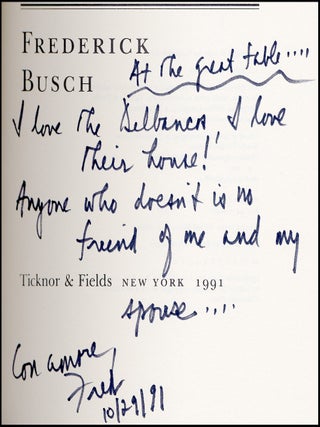 FREDERICK
BUSCH
At the great table....
I love The Delbancos, I love
Their house!
Anyone who doesn't is no
friend of me and my
Ticknor & Fields NEW YORK 1991
spouse....
Con amore,
Fred
10/29/91